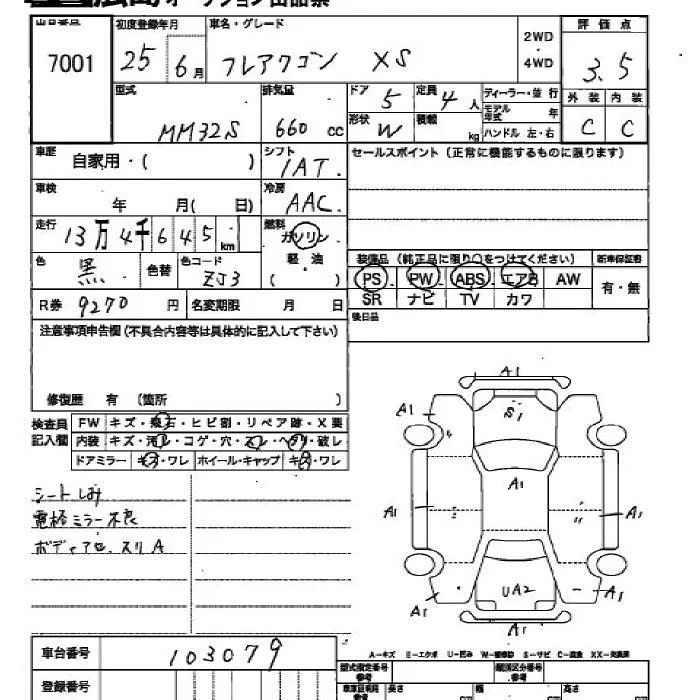 広島オークション出品票
出品番号 初度登録年月 車名・グレード 2WD・4WD 評価点
7001 25 6月 フレアワゴン XS 3.5
型式 排気量 ドア 5 定員 4人 ディーラー・並行 外装 内装
MM32S 660 cc 形状 W 積載 kg モデル年式 年 ハンドル 左・右 C C
車歴 自家用・( ) シフト 1AT. セールスポイント(正常に機能するものに限ります)
車検 年 月( 日) 冷房 AAC.
走行 13万4千645km 燃料 ガソリン 軽・油 ( )
色 黒 色替 色コード ZJ3
装備品(純正品に限り○をつけてください) 新車保証書
PS PW ABS エアB AW 有・無
SR ナビ TV カワ
R券 9270 円 名変期限 月 日 後日品
注意事項申告欄(不具合内容等は具体的に記入して下さい)
修復歴 有 (箇所 )
検査員記入欄 FW キズ・飛石・ヒビ割・リペア跡・X要
内装 キズ・汚れ・コゲ・穴・スレ・ヘタリ・破レ
ドアミラー キズ・ワレ ホイール・キャップ キズ・ワレ
シートしみ
電格ミラー不良
ボディアセ.スリA
A1
A1 S1
A1
A1 A1
UA2 A1
A1
A1
A-キズ E-エクボ U-凹み W-補修跡 S-サビ C-腐食 XX-交換済
車台番号 103079
型式指定番号 参考 類別区分番号 参考
登録番号
長さ cm 幅 cm 高さ cm